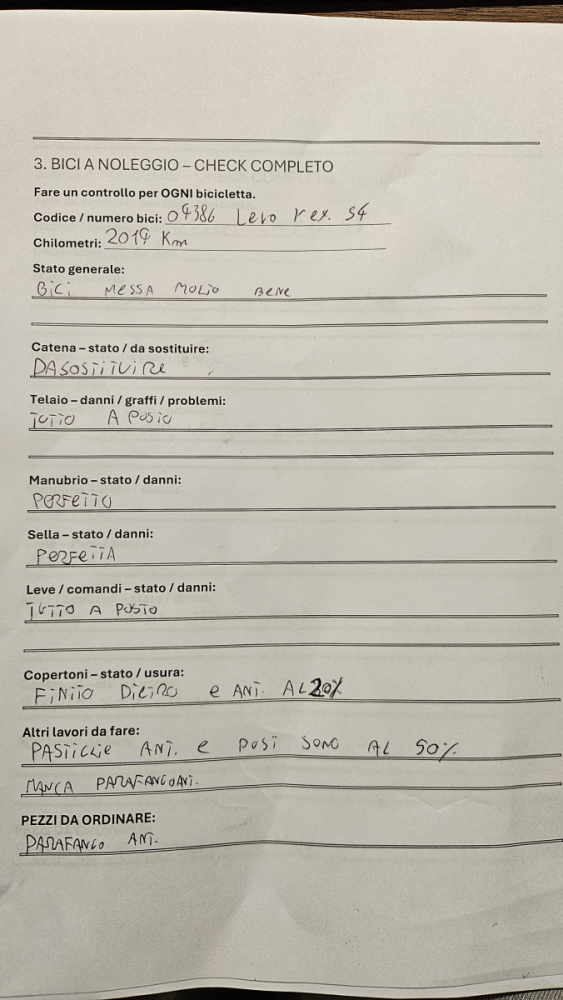 3. BICI A NOLEGGIO – CHECK COMPLETO
Fare un controllo per OGNI bicicletta.
Codice / numero bici: 04386 Levo rex. S4
Chilometri: 2019 Km
Stato generale:
BiCi MESSA MOLTO BENE
Catena – stato / da sostituire:
DA SOSTITUIRE
Telaio – danni / graffi / problemi:
TUTTO A POSTO
Manubrio – stato / danni:
PERFETTO
Sella – stato / danni:
PERFETTA
Leve / comandi – stato / danni:
TUTTO A POSTO
Copertoni – stato / usura:
FINITO DIETRO e ANT. AL 20%
Altri lavori da fare:
PASTICLIE ANT. e POST SONO AL 50%
MANCA PARAFANGO ANT.
PEZZI DA ORDINARE:
PARAFANGO ANT.